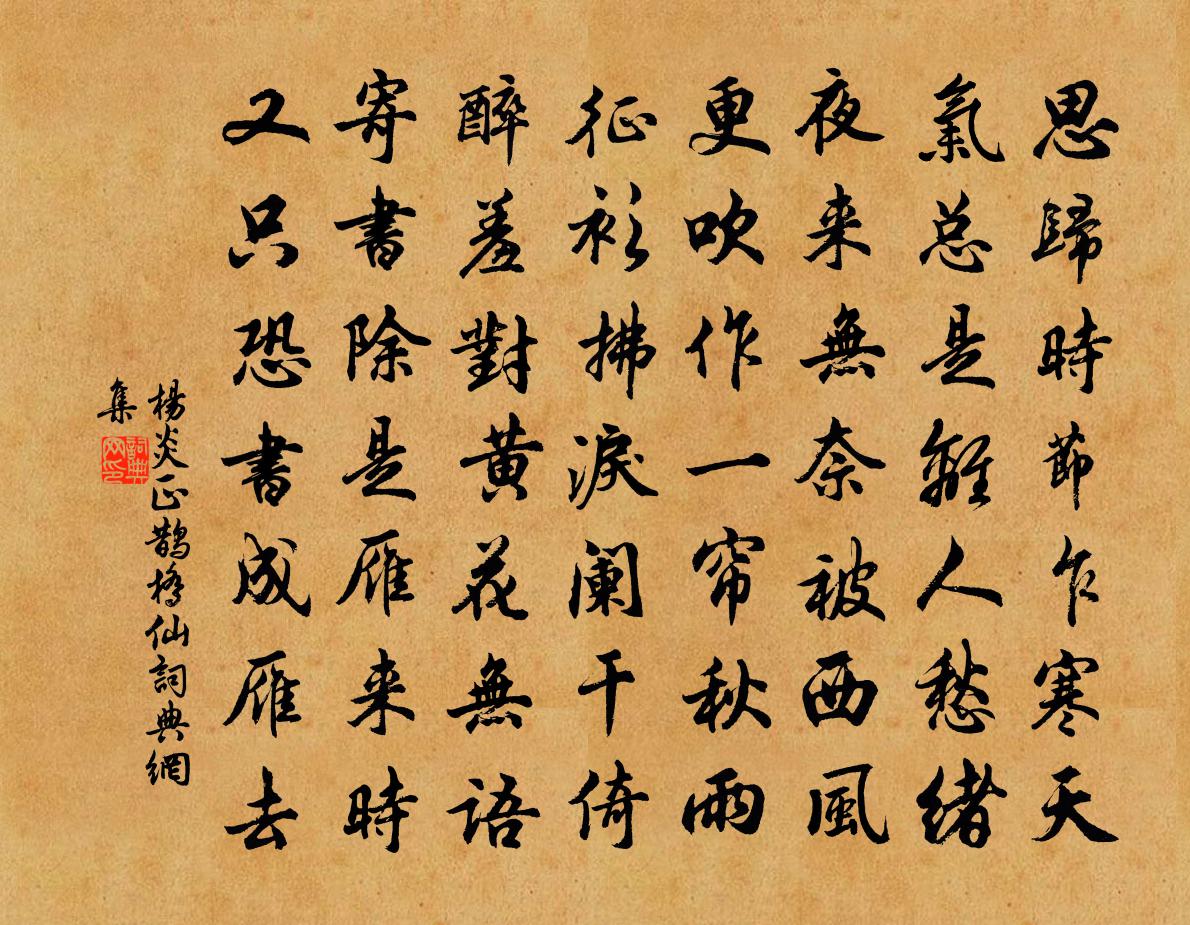 思歸時節乍寒天
氣总是離人愁緒
夜来無奈被西風
更吹作一帘秋雨
征衫拂淚阑干倚
醉羞對黄花無語
寄書除是雁来時
又只恐書成雁去
楊炎正鹊橋仙詞典網
集
詞典网印